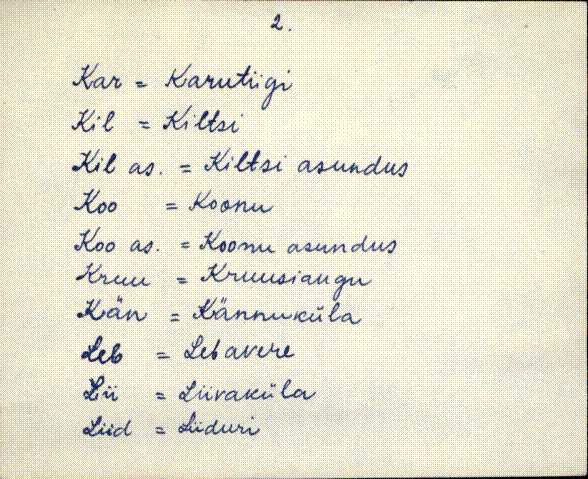 2.
Kar = Karutiigi
Kil = Kiltsi
Kil as. = Kiltsi asundus
Koo = Koonu
Koo as. = Koonu asundus
Kruu = Kruusiaugu
Kän = Kännuküla
Leb = Lebavere
Lii = Liivaküla
Liid = Liiduri